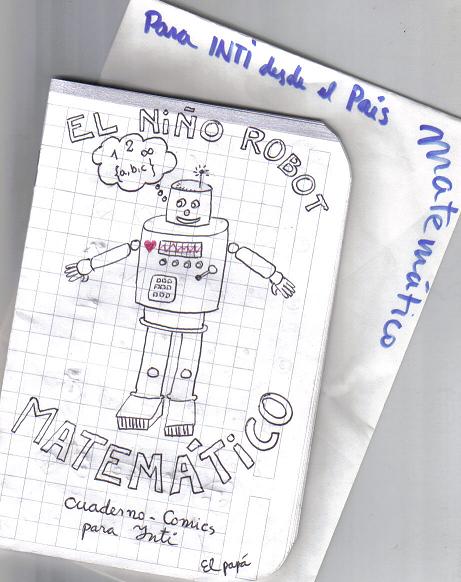 Para INTI desde el País
Matemático
EL NIÑO ROBOT
1 2 ∞
{a,b,c}
MATEMÁTICO
Cuaderno-Comics
para Inti
El papá